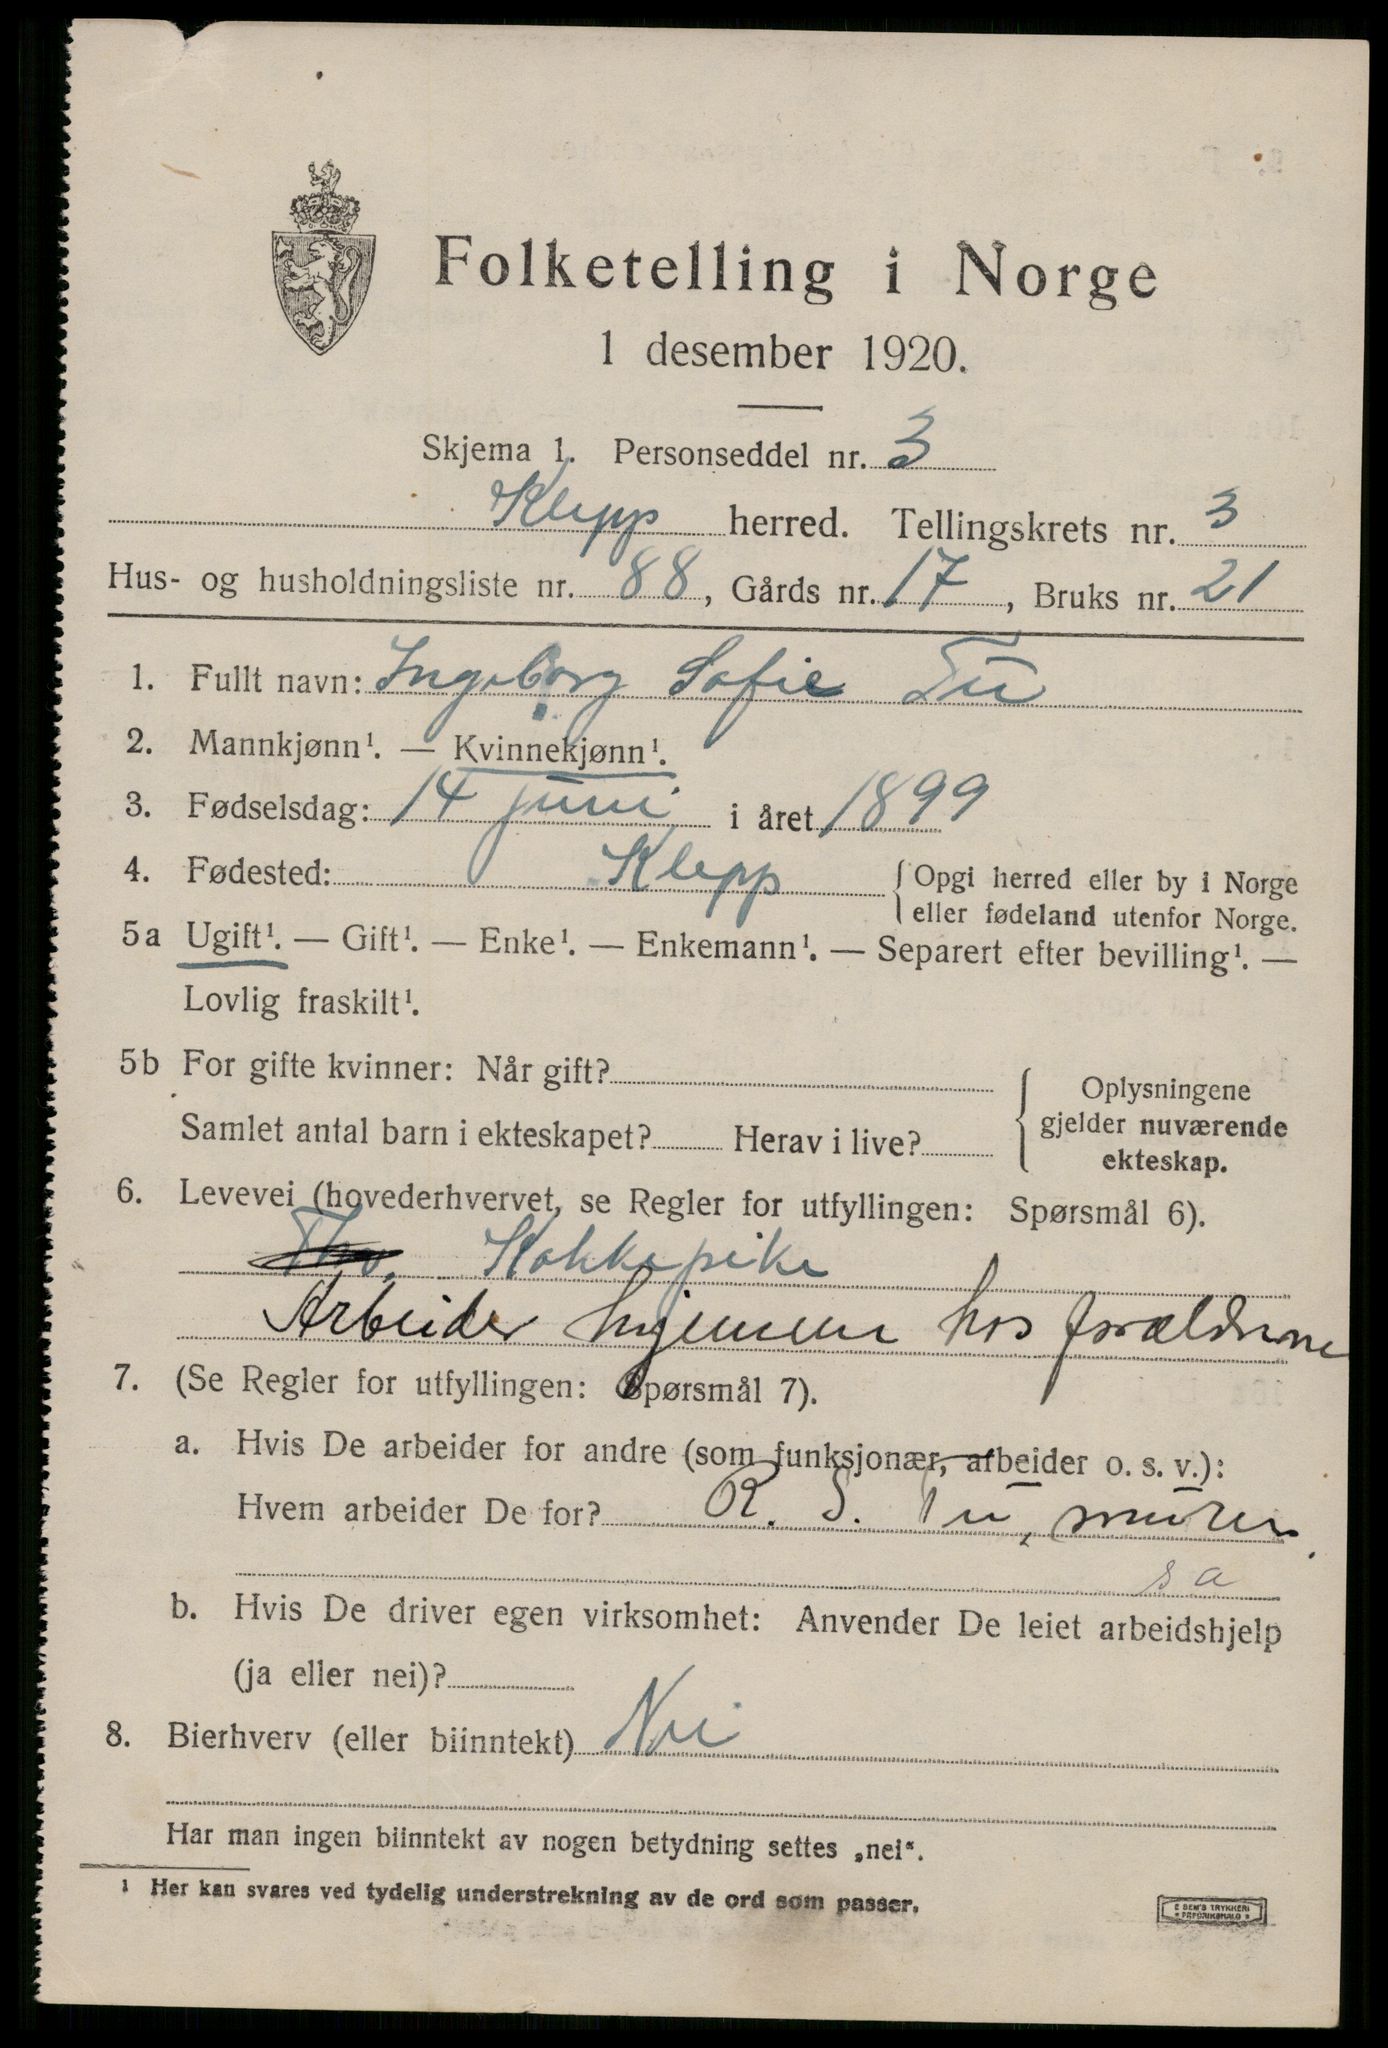 Folketelling i Norge
1 desember 1920.
Skjema 1. Personseddel nr. 3
Klepp herred. Tellingskrets nr. 3
Hus- og husholdningsliste nr. 88, Gårds nr. 17, Bruks nr. 21
1. Fullt navn: Ingeborg Sofie Tu
2. Mannkjønn¹. — Kvinnekjønn¹.
3. Fødselsdag: 14 juni i året 1899
4. Fødested: Klepp {Opgi herred eller by i Norge
eller fødeland utenfor Norge.
5a Ugift¹. — Gift¹. — Enke¹. — Enkemann¹. — Separert efter bevilling¹. —
Lovlig fraskilt¹.
5b For gifte kvinner: Når gift?
Samlet antal barn i ekteskapet? Herav i live?
Oplysningene
gjelder nuværende
ekteskap.
6. Levevei (hovederhvervet, se Regler for utfyllingen: Spørsmål 6).
Kokkepike
Arbeider hjemme hos forældrene
7. (Se Regler for utfyllingen: Spørsmål 7).
a. Hvis De arbeider for andre (som funksjonær, arbeider o. s. v.):
Hvem arbeider De for? R. S. Tu, murer
s a
b. Hvis De driver egen virksomhet: Anvender De leiet arbeidshjelp
(ja eller nei)?
8. Bierhverv (eller biinntekt) Nei
Har man ingen biinntekt av nogen betydning settes „nei“.
¹ Her kan svares ved tydelig understrekning av de ord som passer.